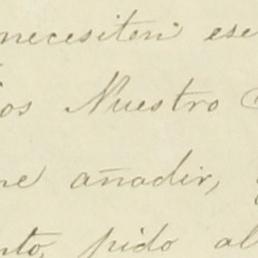 necesiten ese
os Nuestro
ne añadir,
nto, pido al